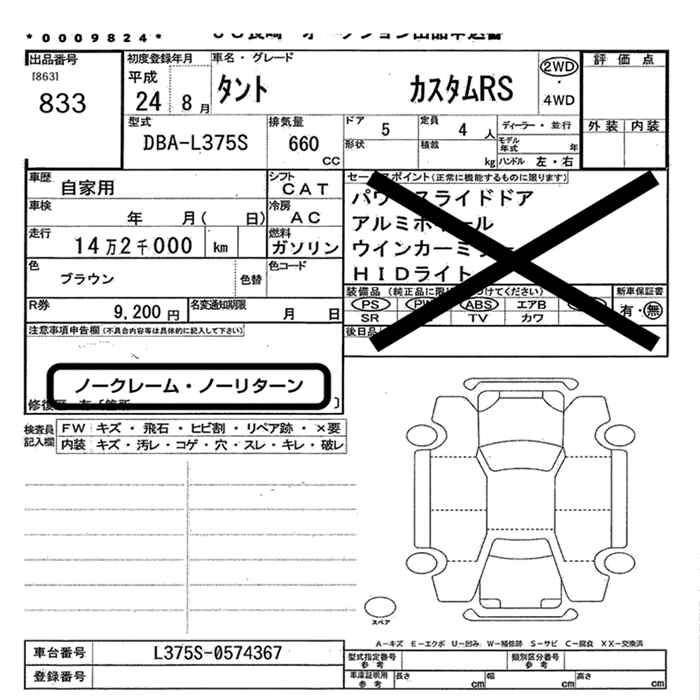 *0009824*
出品番号
[863]
833
初度登録年月
平成
24 8月
車名・グレード
タント カスタムRS
2WD
・
4WD
評価点
外装 内装
型式
DBA-L375S
排気量
660
CC
ドア 5
定員 4 人
形状
積載 kg
ディーラー・並行
モデル年式 年
ハンドル 左・右
車歴
自家用
シフト
CAT
車検
年 月( 日)
冷房
AC
走行
14万2千000 km
燃料
ガソリン
色
ブラウン
色替
色コード
R券
9,200円
名変通知期限
月 日
セールスポイント(正常に機能するものに限ります)
パワースライドドア
アルミホイール
ウインカーミラー
HIDライト
装備品
PS PW ABS エアB
SR TV カワ
新車保証書
有・無
後日品
注意事項申告欄(不具合内容等は具体的に記入して下さい)
ノークレーム・ノーリターン
検査員記入欄
FW キズ・飛石・ヒビ割・リペア跡・×要
内装 キズ・汚レ・コゲ・穴・スレ・キレ・破レ
スペア
A-キズ E-エクボ U-凹み W-補修跡 S-サビ C-腐食 XX-交換済
車台番号 L375S-0574367
登録番号
型式指定番号
参考
類別区分番号
参考
車庫証明用
参考
長さ cm 幅 cm 高さ cm